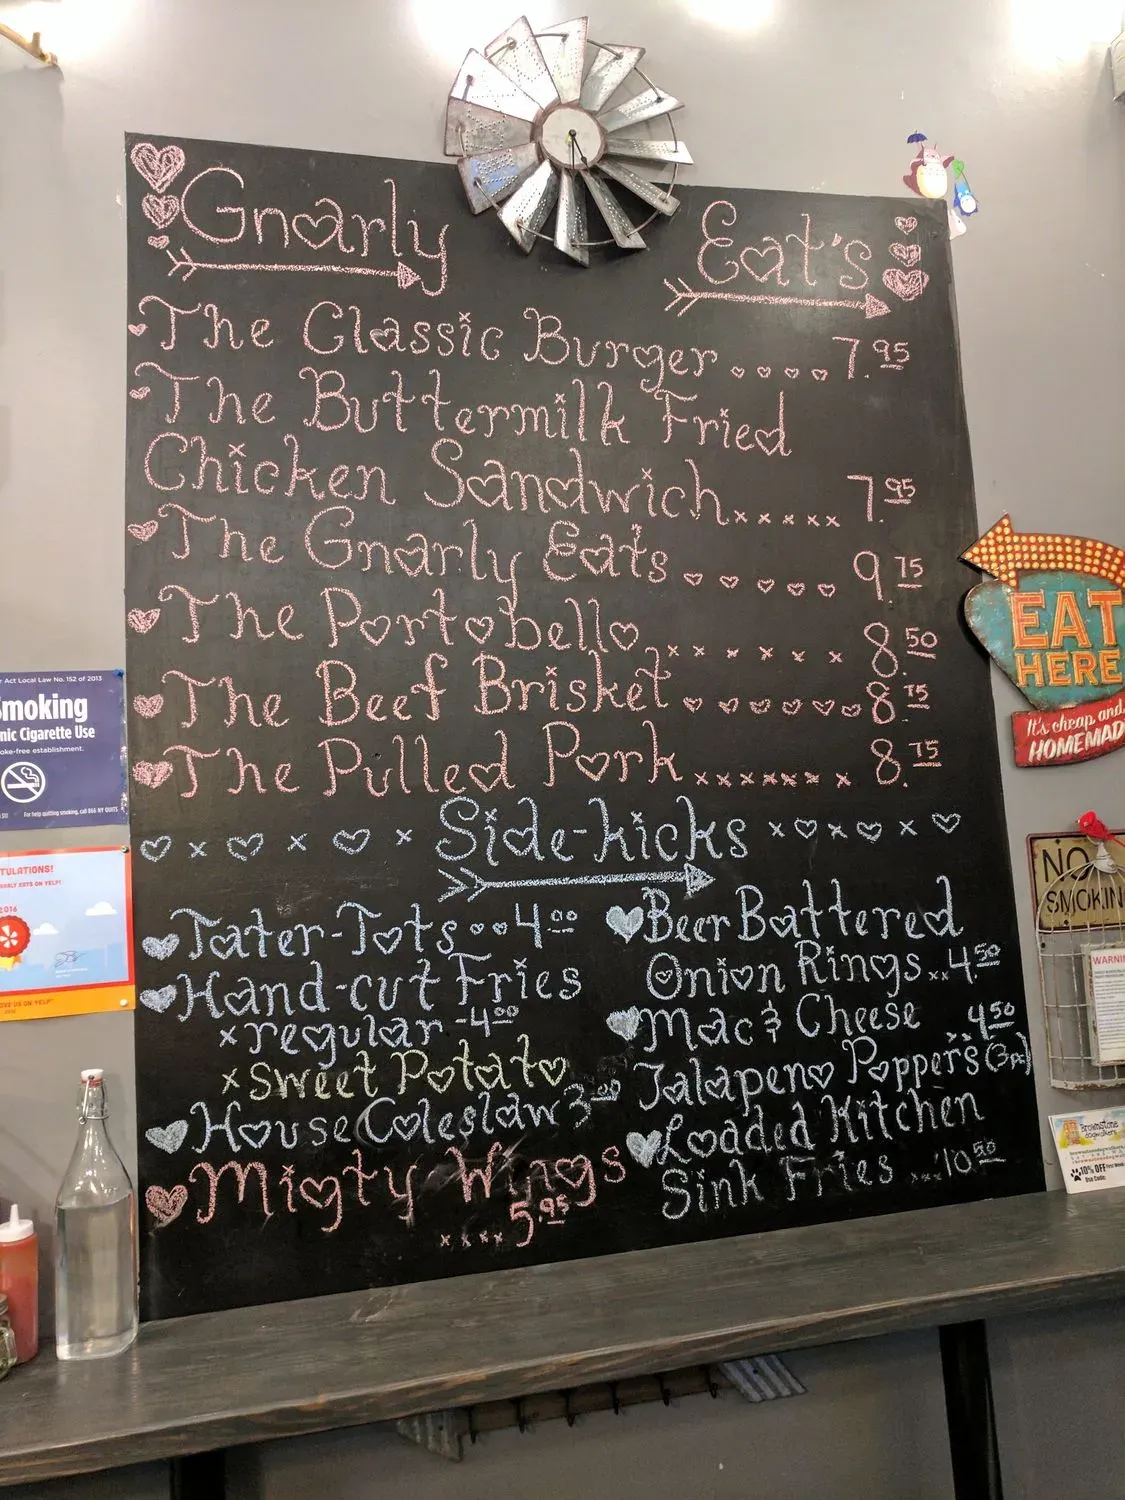 Gnarly Eat's
The Classic Burger .... 7.95
The Buttermilk Fried
Chicken Sandwich..... 7.95
The Gnarly Eats 9.75
The Portobello 8.50
The Beef Brisket 8.75
The Pulled Pork 8.75
Side-kicks
Tater-Tots .. 4.00
Hand-cut Fries
x regular - 4.00
x Sweet Potato
House Coleslaw 3.00
Migty Wings
.... 5.95
Beer Battered
Onion Rings .. 4.50
Mac & Cheese
.. 4.50
Jalapeno Poppers (3pc)
Loaded Kitchen
Sink Fries ... 10.50
EAT
HERE
It's cheap and
HOMEMAD
NO
SMOKIN
WARNIN
Brownstone
10% OFF
Use Code:
r Act Local Law No. 152 of 2013
moking
nic Cigarette Use
oke-free establishment.
For help quitting smoking, call 866 NY QUITS
TULATIONS!
ARLY EATS ON YELP!
2016
OVE US ON YELP